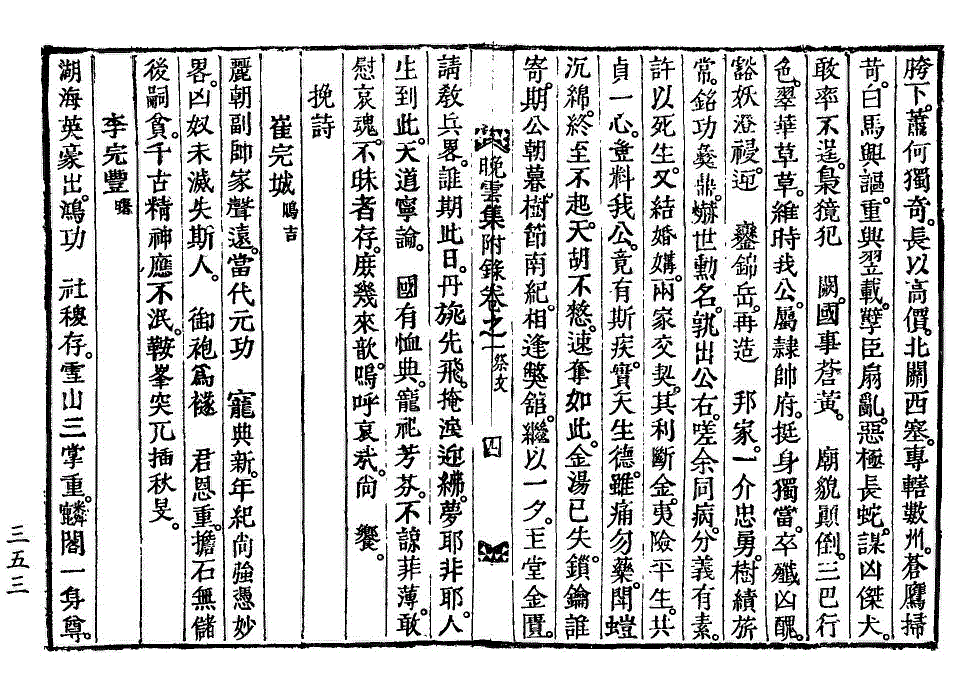 胯下。蕭何獨奇。長以高價。北關西塞。專轄數州。蒼鷹掃
苛。白馬興謳。重興翌載。孽臣扇亂。惡極長蛇。謀凶傑犬。
敢率不逞。梟獍犯 闕。國事蒼黃。 廟貌顚倒。三巴行
色。翠華草草。維時我公。屬隷帥府。挺身獨當。卒殲凶醜。
豁妖澄祲。迎 鑾錦岳。再造 邦家。一介忠勇。樹績旂
常。銘功彝鼎。蠏世勳名。孰出公右。嗟余同病。分義有素。
許以死生。又結婚媾。兩家交契。其利斷金。夷險平生。共
貞一心。豈料我公。竟有斯疾。實天生德。雖痛勿藥。閏螘
沉綿。終至不起。天胡不憖。速奪如此。金湯已失。鎖鑰誰
寄。期公朝暮。樹節南紀。相逢獘舘。繼以一夕。玉堂金匱。
晩雲集附錄卷之一 祭文 四
請敎兵畧。誰期此日。丹旐先飛。掩淚迎紼。夢耶非耶。人
生到此。天道寧論。 國有恤典。寵祀芳芬。不諒菲薄。敢
慰哀魂。不昧者存。庶幾來歆。嗚呼哀哉。尙 饗。
挽詩
崔完城 鳴吉
麗朝副帥家聲遠。當代元功 寵典新。年紀尙強憑妙
畧。凶奴未滅失斯人。 御袍爲襚 君恩重。擔石無儲
後嗣貧。千古精神應不泯。鞍峯突兀插秋旻。
李完豐 曙
湖海英豪出。鴻功 社稷存。雪山三掌重。麟閣一身尊。
三五三